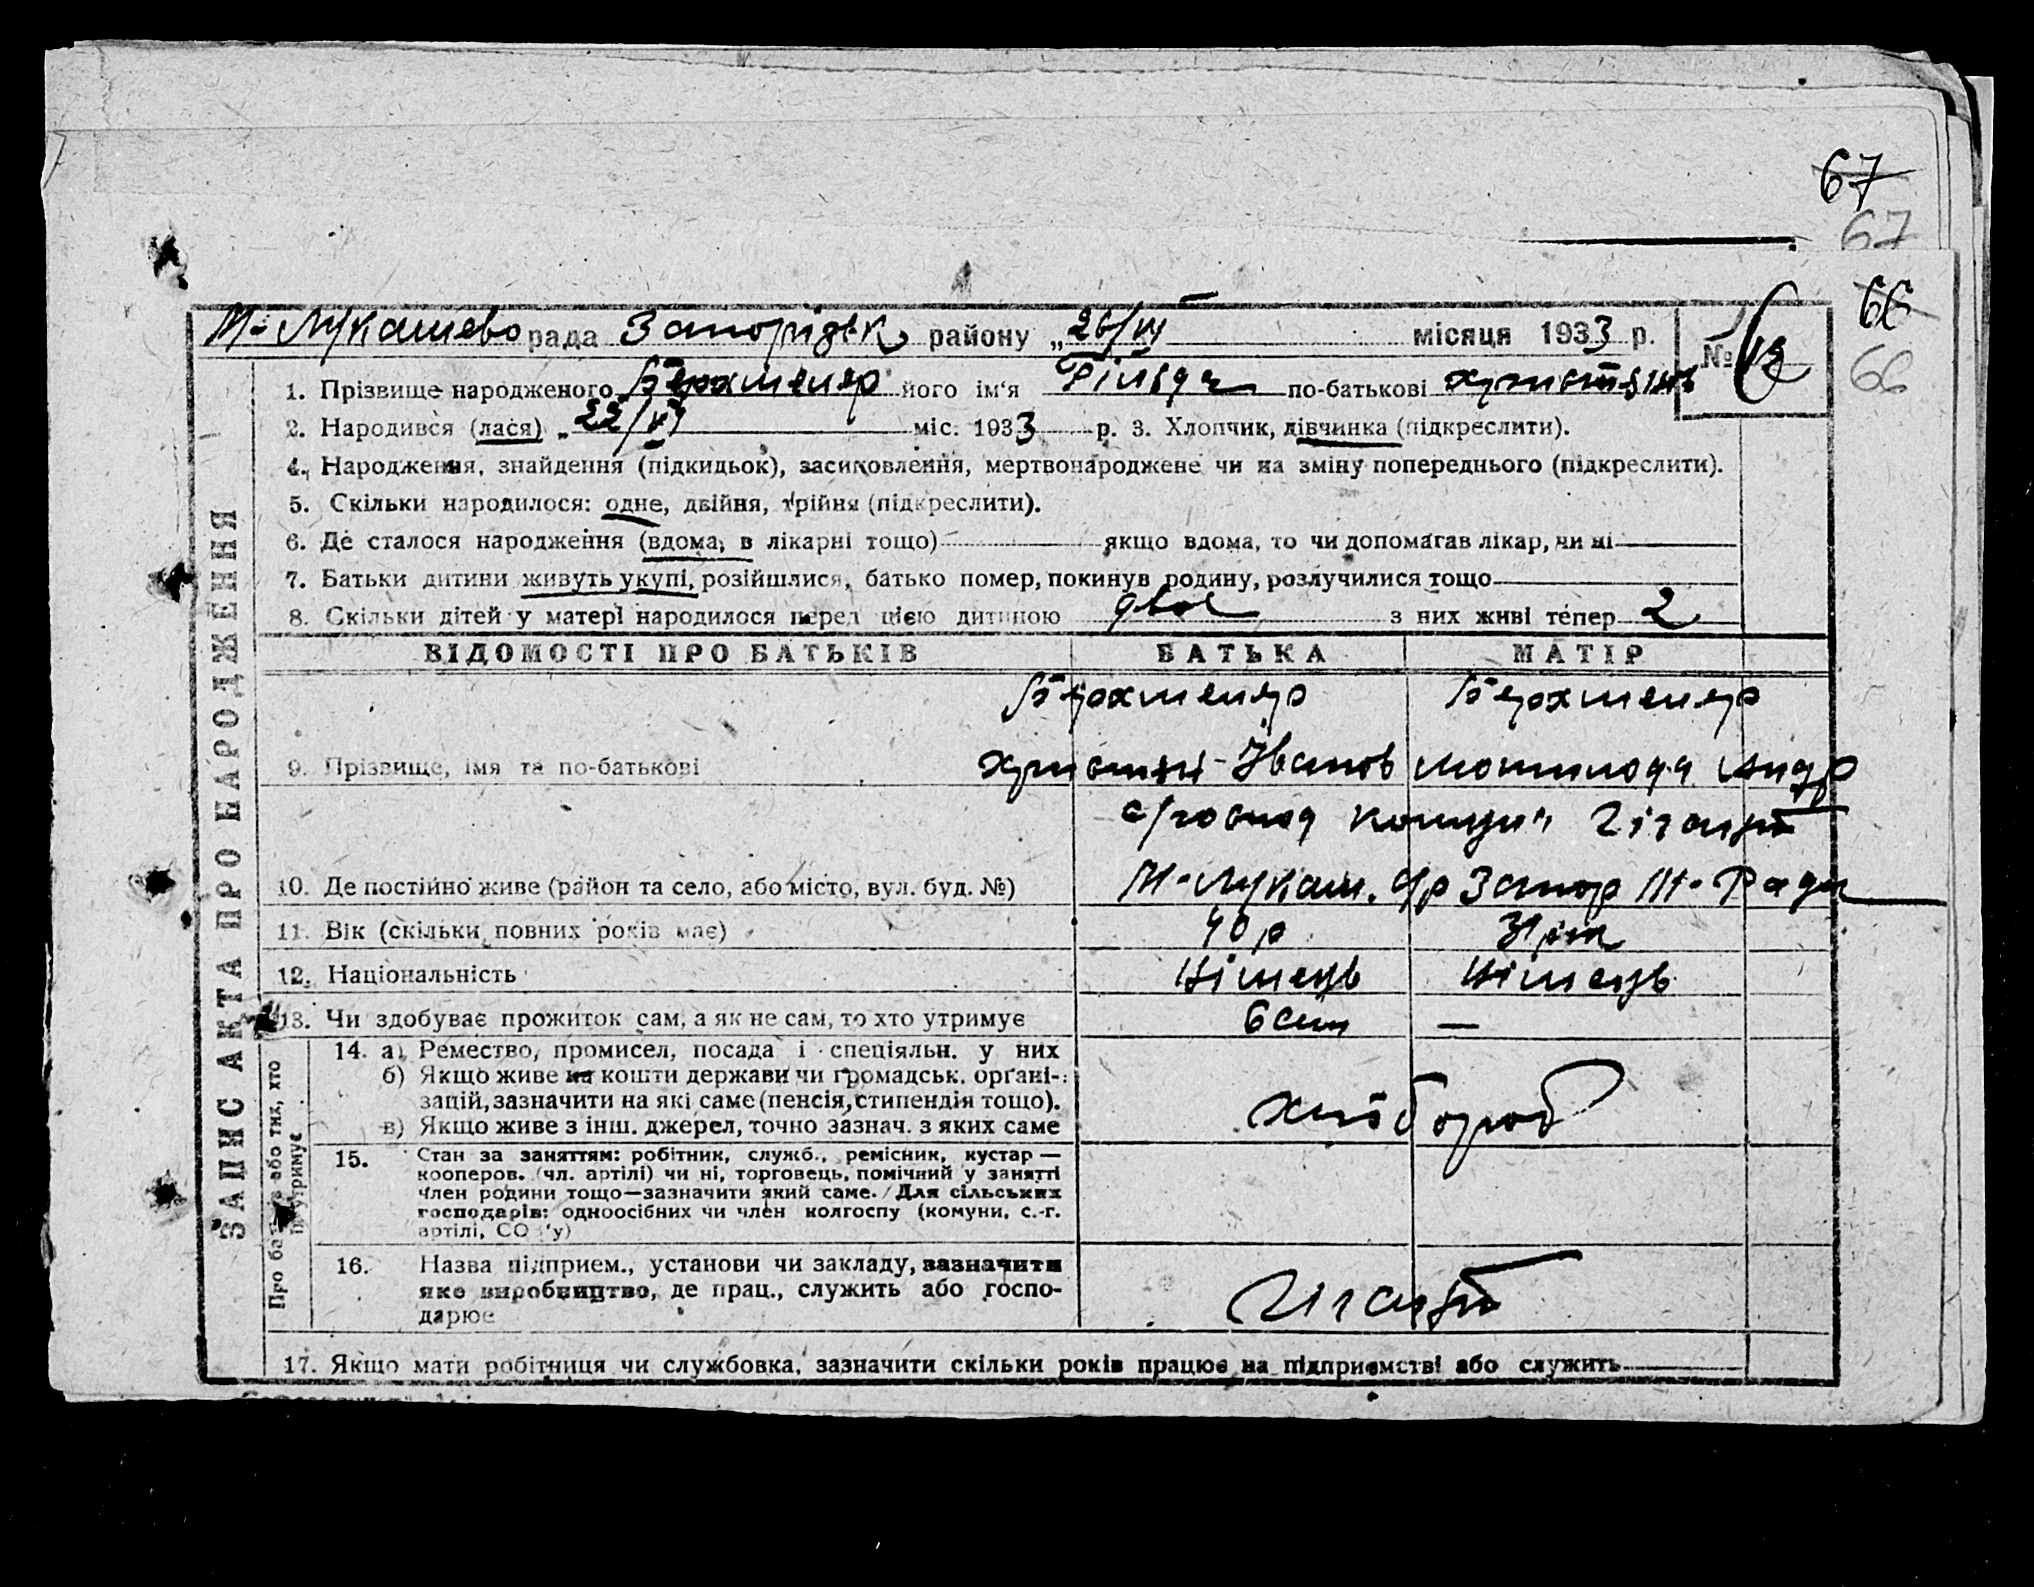 67
67
66
66
М-Лукашево рада Запорізьк району „26/VI місяця 1933 р.
№ 13
1. Прізвище народженого його ім‘я Гільда по-батькові
2. Народився (лася) „22/VI міс. 1933 р. 3. Хлопчик, дівчинка (підкреслити).
4. Народження, знайдення (підкидьок), засиновлення, мертвонароджене чи на зміну попереднього (підкреслити).
5. Скільки народилося: одне, двійня, трійня (підкреслити).
6. Де сталося народження (вдома, в лікарні тощо) якщо вдома, то чи допомагав лікар, чи ні
7. Батьки дитини живуть укупі, розійшлися, батько помер, покинув родину, розлучилися тощо
8. Скільки дітей у матері народилося перед цією дитиною двоє з них живі тепер 2
ЗАПИС АКТА ПРО НАРОДЖЕННЯ
ВІДОМОСТІ ПРО БАТЬКІВ БАТЬКА МАТІР
9. Прізвище, імя та по-батькові Іванов Андр
Гігант
10. Де постійно живе (район та село, або місто, вул. буд. №) М-Лукаш. с/р Запор Рада
11. Вік (скільки повних років має) 40 р 31 рік
12. Національність Німець Німець
13. Чи здобуває прожиток сам, а як не сам, то хто утримує сам —
Про батька або тих, хто їх утримує
14. а) Ремество, промисел, посада і спеціяльн. у них
б) Якщо живе на кошти держави чи громадськ. органі-
зацій, зазначити на які саме (пенсія, стипендія тощо).
в) Якщо живе з інш. джерел, точно зазнач. з яких саме
хлібороб
15. Стан за заняттям: робітник, служб., ремісник, кустар —
кооперов. (чл. артілі) чи ні, торговець, помічний у занятті
член родини тощо—зазначити який саме. Для сільських
господарів: одноосібних чи член колгоспу (комуни, с.-г.
артілі, СО 'у)
16. Назва підприєм., установи чи закладу, зазначити
яке виробництво, де прац., служить або госпо-
дарює
Гігант
17. Якщо мати робітниця чи службовка, зазначити скільки років працює на підприємстві або служить